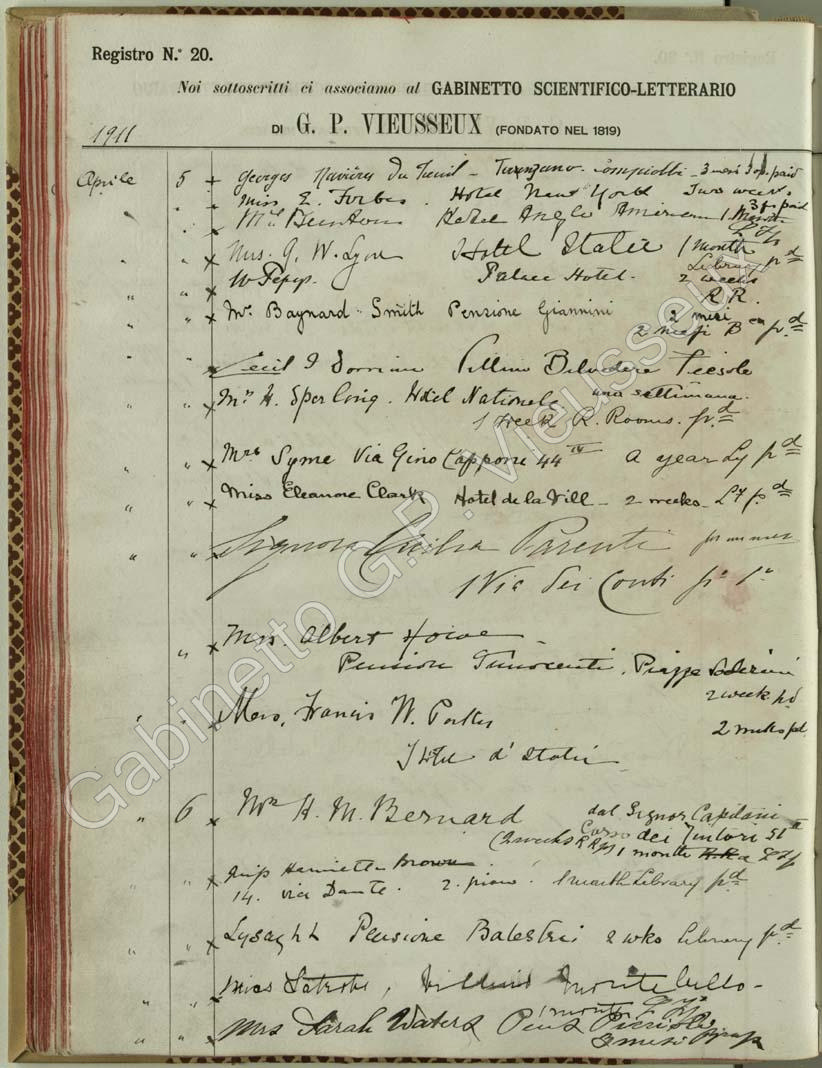 Registro N.° 20.
Noi sottoscritti ci associamo al GABINETTO SCIENTIFICO-LETTERARIO
DI G. P. VIEUSSEUX (FONDATO NEL 1819)
1911
Aprile 5 x Georges Navières du Treuil - 3 mesi paid
" " x Miss E. Forbes. Hotel New York Two weeks
3 f. paid
Hotel Anglo American 1 Month
" " x Mrs. G. W. Lyon Hotel Italie 1 month
Library pd
" " x W Pepys. Palace Hotel. 2 weeks
R R.
" " x Mr. Baynard-Smith Pensione Giannini 2 mesi
2 mesi pd
" " x Cecil Villino Belvedere Fiesole
" " x Mr. H. Sperling. Hotel Nationale una settimana.
1 week R. Rooms. pd
" " x Mrs Syme Via Gino Capponi 44 IV a year Ly pd
" " x Miss Eleanore Clark Hotel de la Vill - 2 weeks - Ly pd
" " x Signora Parenti per un mese
1 Via dei Conti
" x Mrs. Albert Howe -
Pension Innocenti, Piazza Soderini
2 week pd
" " x Francis W. Porter 2 weeks pd
Hotel d'Italie
" 6 x Mrs H. M. Bernard dal Signor Capitani
Corso dei Tintori 51
(2 weeks RR 1 month
" " x Miss Harriette Brown.
14. via Dante. 2. piano. 1 month Library pd
" " x Lysaght Pensione Balestri 2 wks Library pd
" " x Miss Latrobe, Montebello -
1 month
" " x Mrs Sarah Waters Pens
Gabinetto G.P. Vieusseux